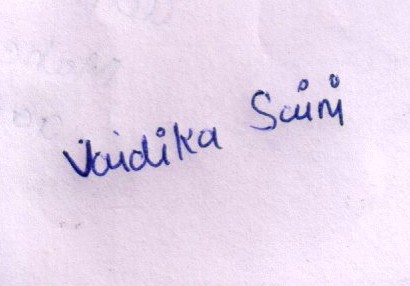 Vaidika Saini